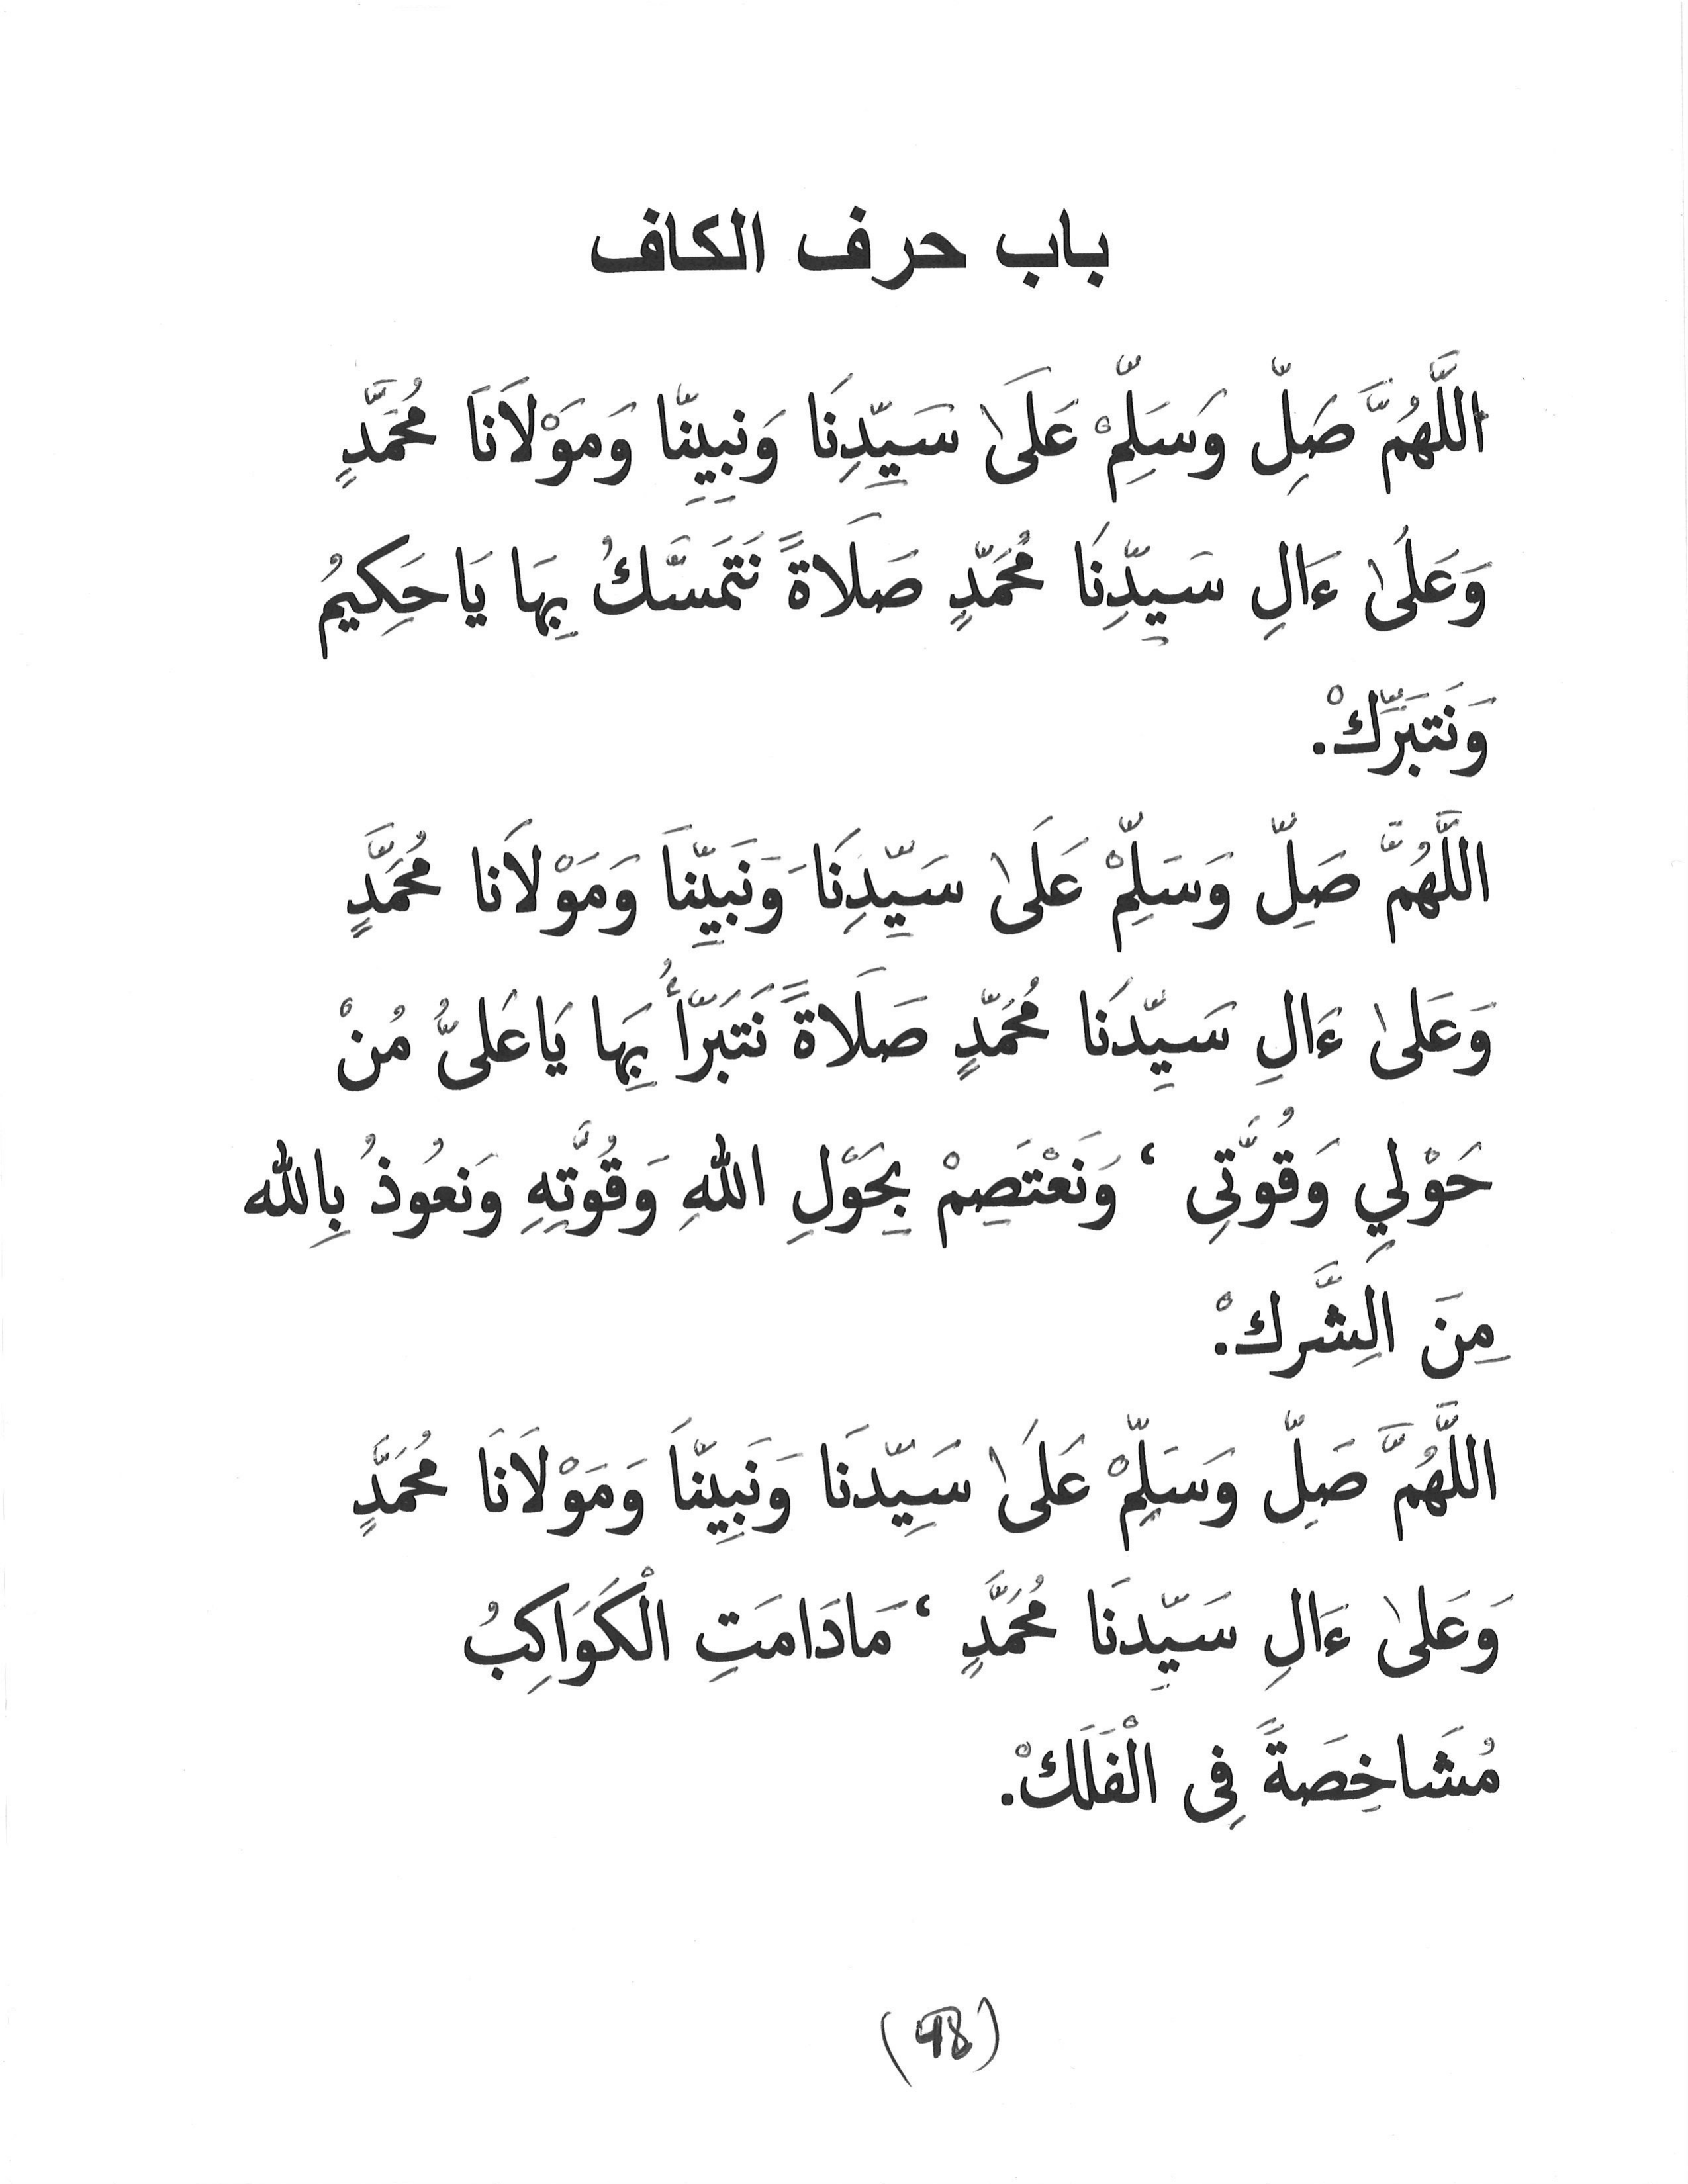 باب حرف الكاف
اللَّهُمَّ صَلِّ وَسَلِّمْ عَلَىٰ سَيِّدِنَا وَنَبِيِنّا وَمَوْلَانَا مُحَمَّدٍ
وَعَلىٰ ءَالِ سَيِّدِنَا مُحَمَّدٍ صَلَاةً نَتَمَسَّكُ بِهَا يَاحَكِيمُ
وَنَتبَرَّكْ.
اللَّهُمَّ صَلِّ وَسَلِّمْ عَلَىٰ سَيِّدِنَا وَنَبَيِّنَا وَمَوْلَانا مُحَمَّدٍ
وَعَلىٰ ءَالِ سَيِّدنَا مُحَمَّدٍ صَلَاةً نَتَبَرَّأُ بِهَا يَاعَلىُّ مُنْ
حَوْلِي وَقُوَّتِى ، وَنَعْتَصِمْ بِحَوْلِ اللهِ وَقُوَّتِهِ وَنَعُوذُ بِالله
مِنَ الِشَّرك.ْ
اللَّهُمَّ صَلِّ وَسَلِّمْ عَلَىٰ سَيِّدنَا وَنَبِيّنَا وَمَوْلَانَا مُحَمَّدٍ
وَعَلىٰ ءَالِ سَيِّدنَا مُحَمَّدٍ ، مَادَامَتِ الْكَوَاكِبُ
مُشَاخِصَةً فِى الْفَلَكْ.
(98)